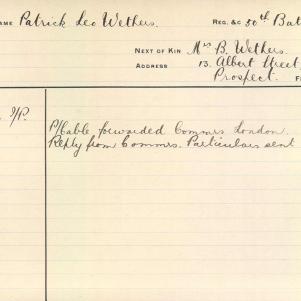 NAME Patrick Leo Wethers. REG. &c 50th Bat
NEXT OF KIN Mrs B. Wethers
ADDRESS 13. Albert Street,
Prospect.
P/Cable forwarded Commrs London.
Reply from Commrs. Particulars sent